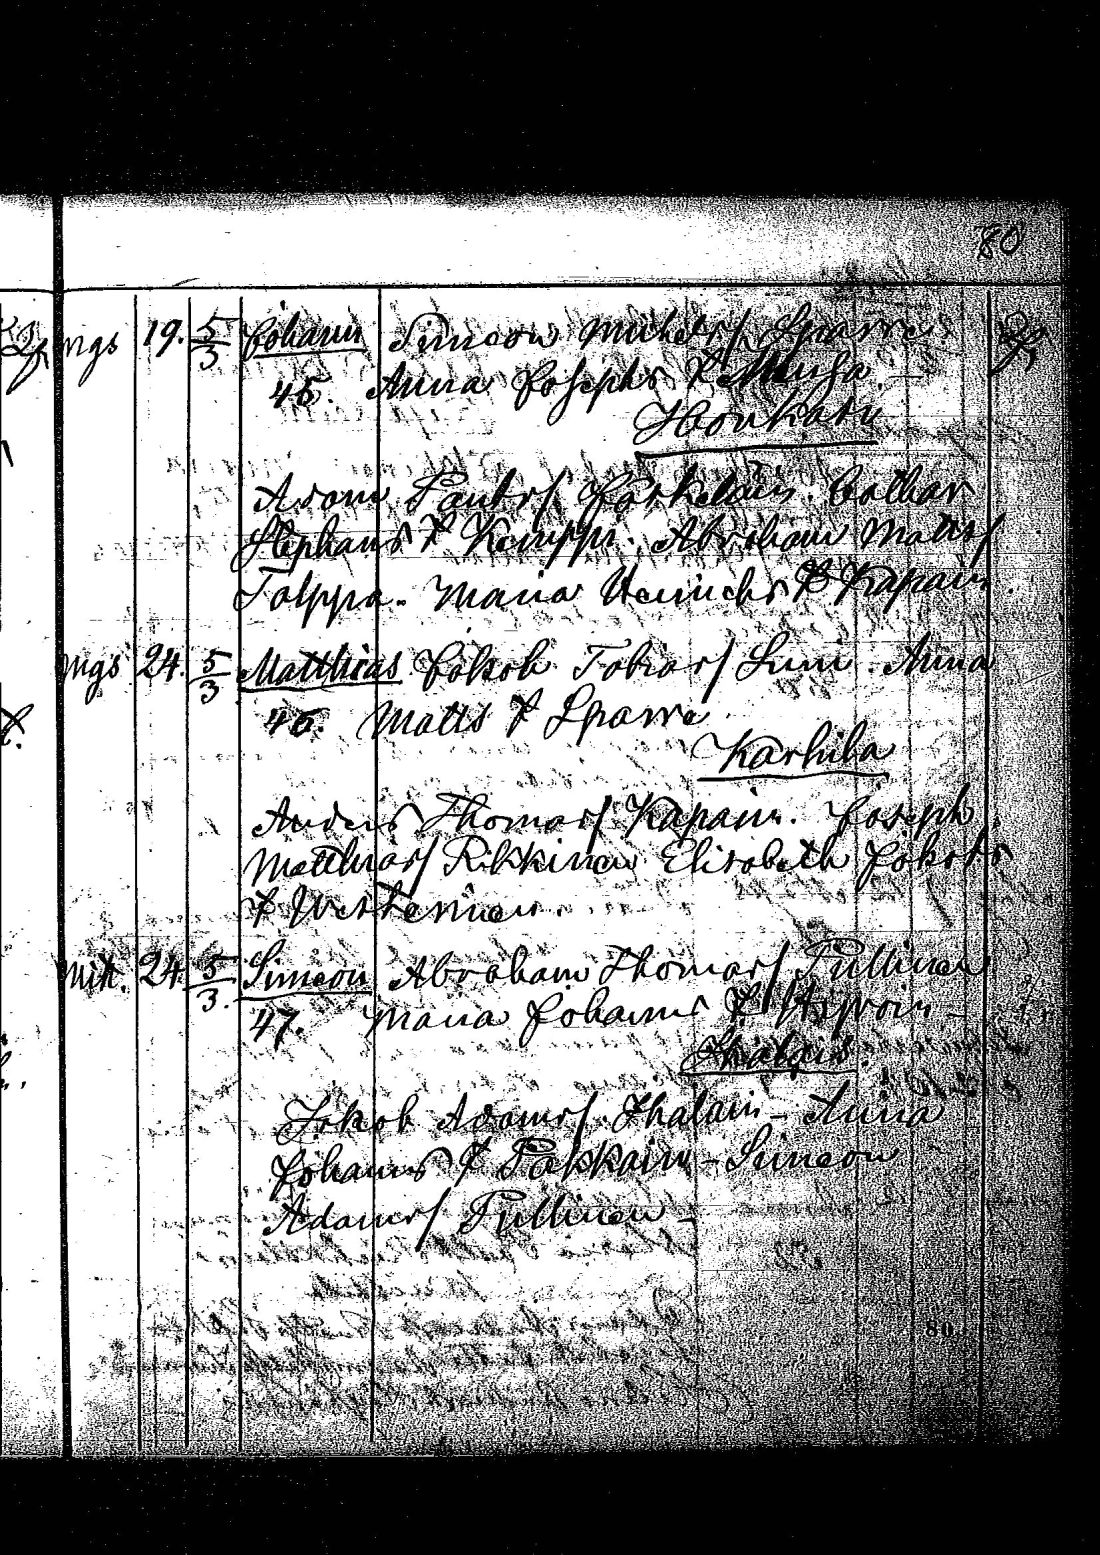 80
mgs 19. 5/3 Johann Simeon Michels/ Sparre
45. Anna Josephs
Honkasu
Adam Pauls/ Cathar
Stephans Kemppi. Abraham Matts/
Talppa. Maria Henrichs Kapain
mgs 24. 5/3 Matthias Jakob Tobias/ Summ. Anna
46. Matts Sparre
Karhila
Anders Thomas/ Kapain. Joseph
Matthias/ Rikkinen Elisabeth Jakobs
Westerinen.
Mik. 24. 5/3. Simeon Abraham Thomas/ Pullinen
47. Maria Johanns
Jakob Adams/. Ihalain - Anna
Johanns Pakkain - Simeon
Adams/ Pullinen -
80